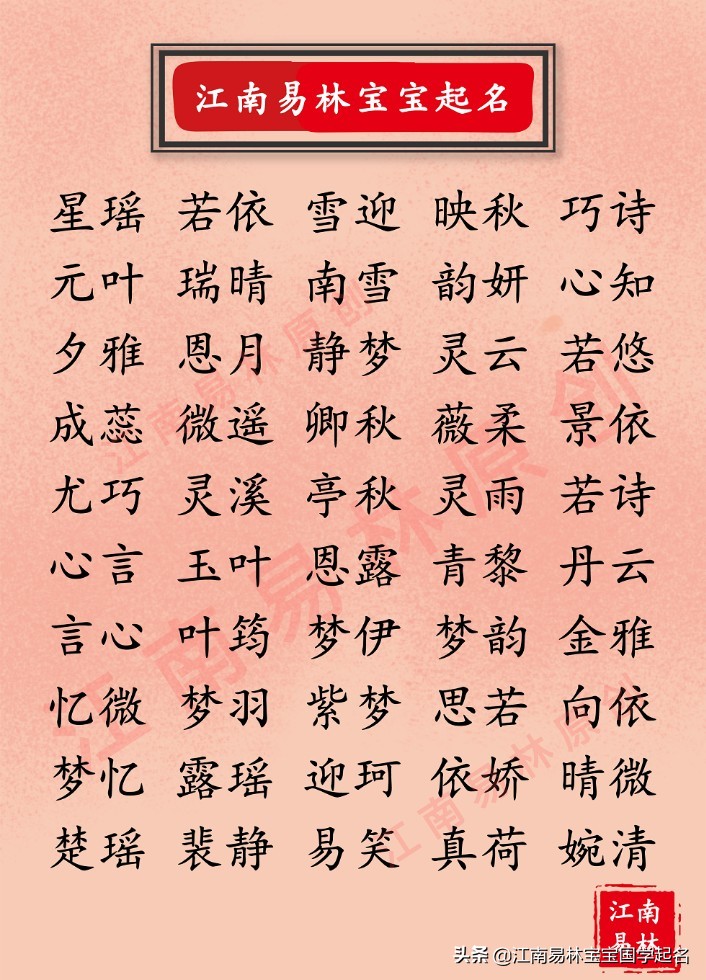 江南易林宝宝起名
星瑶 若依 雪迎 映秋 巧诗
元叶 瑞晴 南雪 韵妍 心知
夕雅 恩月 静梦 灵云 若悠
成蕊 微遥 卿秋 薇柔 景依
尤巧 灵溪 亭秋 灵雨 若诗
心言 玉叶 恩露 青黎 丹云
言心 叶筠 梦伊 梦韵 金雅
忆微 梦羽 紫梦 思若 向依
梦忆 露瑶 迎珂 依娇 晴微
楚瑶 裴静 易笑 真荷 婉清
江南易林原创
江南易林原创
江南易林原创
江南
易林
头条 @江南易林宝宝国学起名